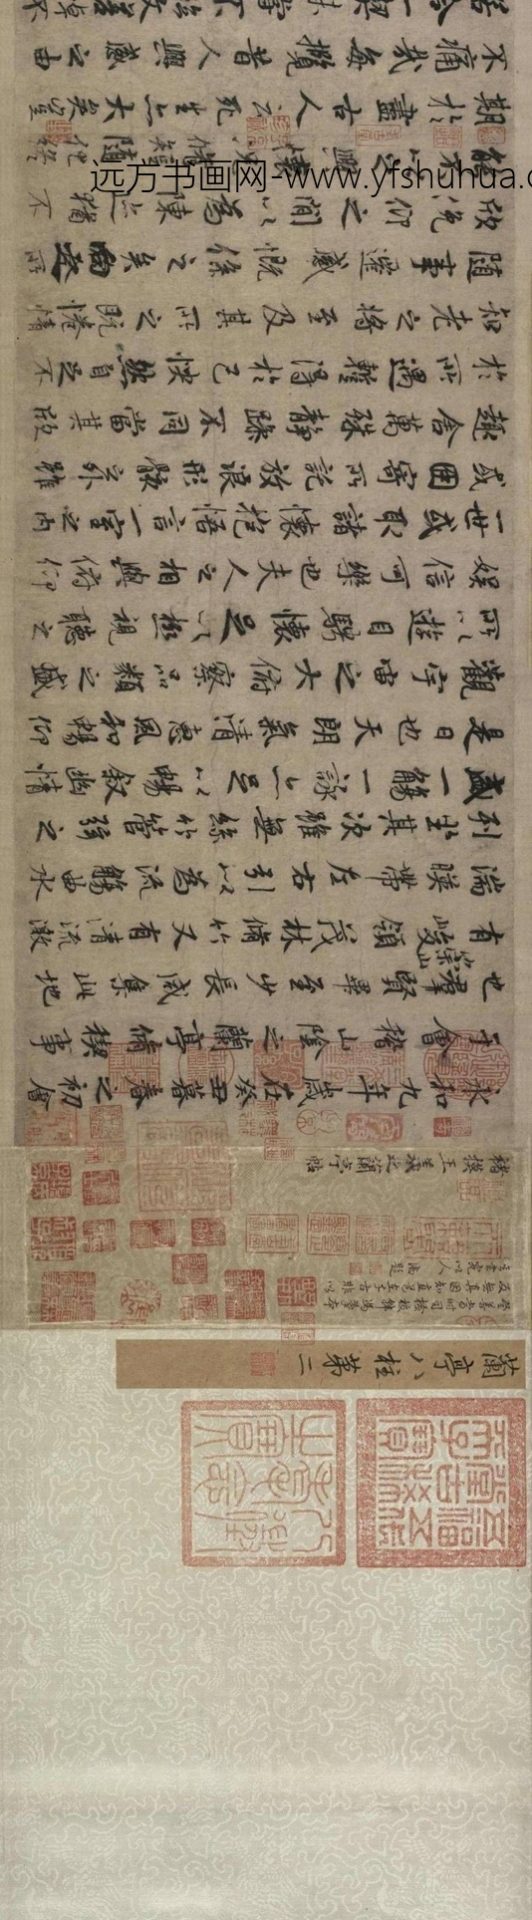 五福五代堂古稀天子寶
八徵耄念之寶
蘭亭八柱第二
褚摸王羲之蘭亭帖
永和九年歲在癸丑暮春之初會
于會稽山陰之蘭亭脩稧事
也羣賢畢至少長咸集此地
有崇山峻領茂林脩竹又有清流激
湍暎帶左右引以為流觴曲水
列坐其次雖無絲竹管弦之
盛一觴一詠亦足以暢敘幽情
是日也天朗氣清惠風和暢仰
觀宇宙之大俯察品類之盛
所以遊目騁懷足以極視聽之
娛信可樂也夫人之相與俯仰
一世或取諸懷抱悟言一室之內
或因寄所託放浪形骸之外雖
趣舍萬殊靜躁不同當其欣
於所遇暫得於己怏然自足不
知老之將至及其所之既惓情
隨事遷感慨係之矣向之所
欣俛仰之間以為陳迹猶不
能不以之興懷況脩短隨化終
期於盡古人云死生亦大矣豈
不痛哉每攬昔人興感之由
若合一契未嘗不臨文嗟悼不
远方书画网-www.yfshuhua.c